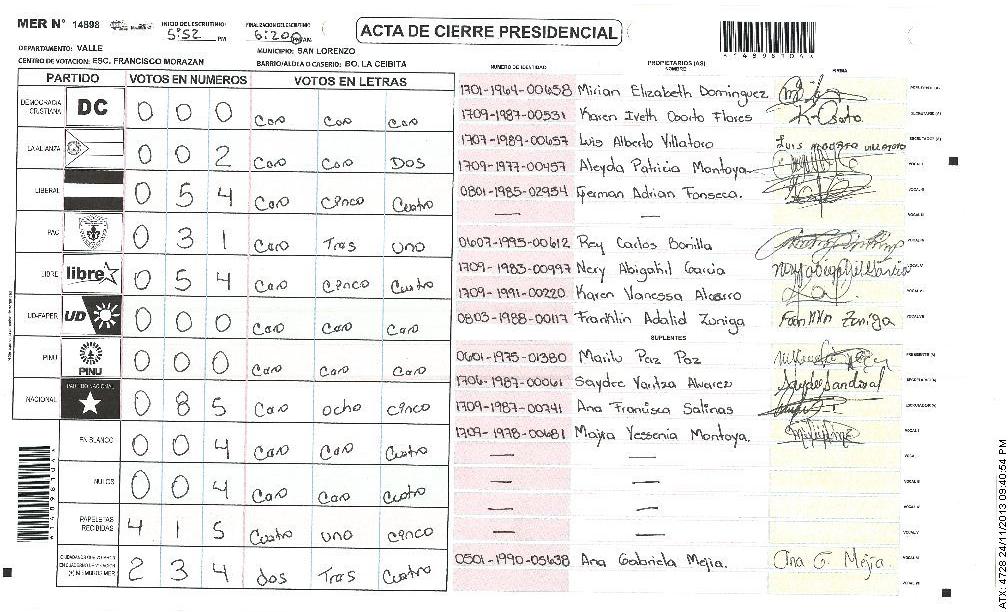 MER N° 14898
INICIO DEL ESCRUTINIO: 5:52 PM
FINALIZACION DEL ESCRUTINIO 6:20 PM
ACTA DE CIERRE PRESIDENCIAL
DEPARTAMENTO: VALLE
MUNICIPIO: SAN LORENZO
CENTRO DE VOTACION: ESC. FRANCISCO MORAZAN
BARRIO/ALDEA O CASERIO: BO. LA CEIBITA
PARTIDO VOTOS EN NUMEROS VOTOS EN LETRAS
DEMOCRACIA CRISTIANA DC 0 0 0 Cero Cero Cero
LA ALIANZA 0 0 2 Cero Cero Dos
LIBERAL 0 5 4 Cero Cinco Cuatro
PAC 0 3 1 Cero Tres uno
LIBRE libre 0 5 4 Cero Cinco Cuatro
UD-FAPER UD 0 0 0 Cero Cero Cero
PINU PINU 0 0 0 Cero Cero Cero
NACIONAL PARTIDO NACIONAL 0 8 5 Cero ocho cinco
EN BLANCO 0 0 4 Cero Cero Cuatro
NULOS 0 0 4 Cero Cero Cuatro
PAPELETAS RECIBIDAS 4 1 5 Cuatro uno cinco
2 3 4 dos Tres Cuatro
NUMERO DE IDENTIDAD PROPIETARIOS (AS) NOMBRE FIRMA
1701-1964-00658 Mirian Elizabeth Dominguez
1709-1987-00531 Karen Iveth Osorto Flores
1707-1989-00657 Luis Alberto Villatoro
1709-1977-00457 Aleyda Patricia Montoya
0801-1985-02954 German Adrian Fonseca.
0607-1995-00612 Rey Carlos Bonilla
1709-1983-00997 Nery Abigahil Garcia
1709-1991-00220 Karen Vanessa Alvarro
0803-1988-00117 Franklin Adalid Zuniga
SUPLENTES
0601-1975-01380 Marilu Paz Paz
1706-1987-00061 Saydre Yaritza Alvarez
1709-1987-00741 Ana Francisca Salinas
1709-1978-00681 Majra Yessenia Montoya.
0501-1990-05638 Ana Gabriela Mejia. Ana G. Mejia.
ATX: 4728 24/11/2013 09:40:54 PM